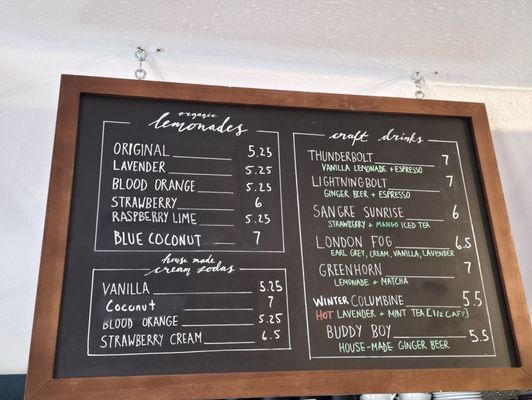 organic
lemonades
ORIGINAL 5.25
LAVENDER 5.25
BLOOD ORANGE 5.25
STRAWBERRY 6
RASPBERRY LIME 5.25
BLUE COCONUT 7
house made
cream sodas
VANILLA 5.25
COCONUT 7
BLOOD ORANGE 5.25
STRAWBERRY CREAM 6.5
craft drinks
THUNDERBOLT 7
VANILLA LEMONADE + ESPRESSO
LIGHTNINGBOLT 7
GINGER BEER + ESPRESSO
SANGRE SUNRISE 6
STRAWBERRY + MANGO ICED TEA
LONDON FOG 6.5
EARL GREY, CREAM, VANILLA, LAVENDER
GREENHORN 7
LEMONADE + MATCHA
WINTER COLUMBINE 5.5
HOT LAVENDER + MINT TEA [1/2 CAFF]
BUDDY BOY 5.5
HOUSE-MADE GINGER BEER